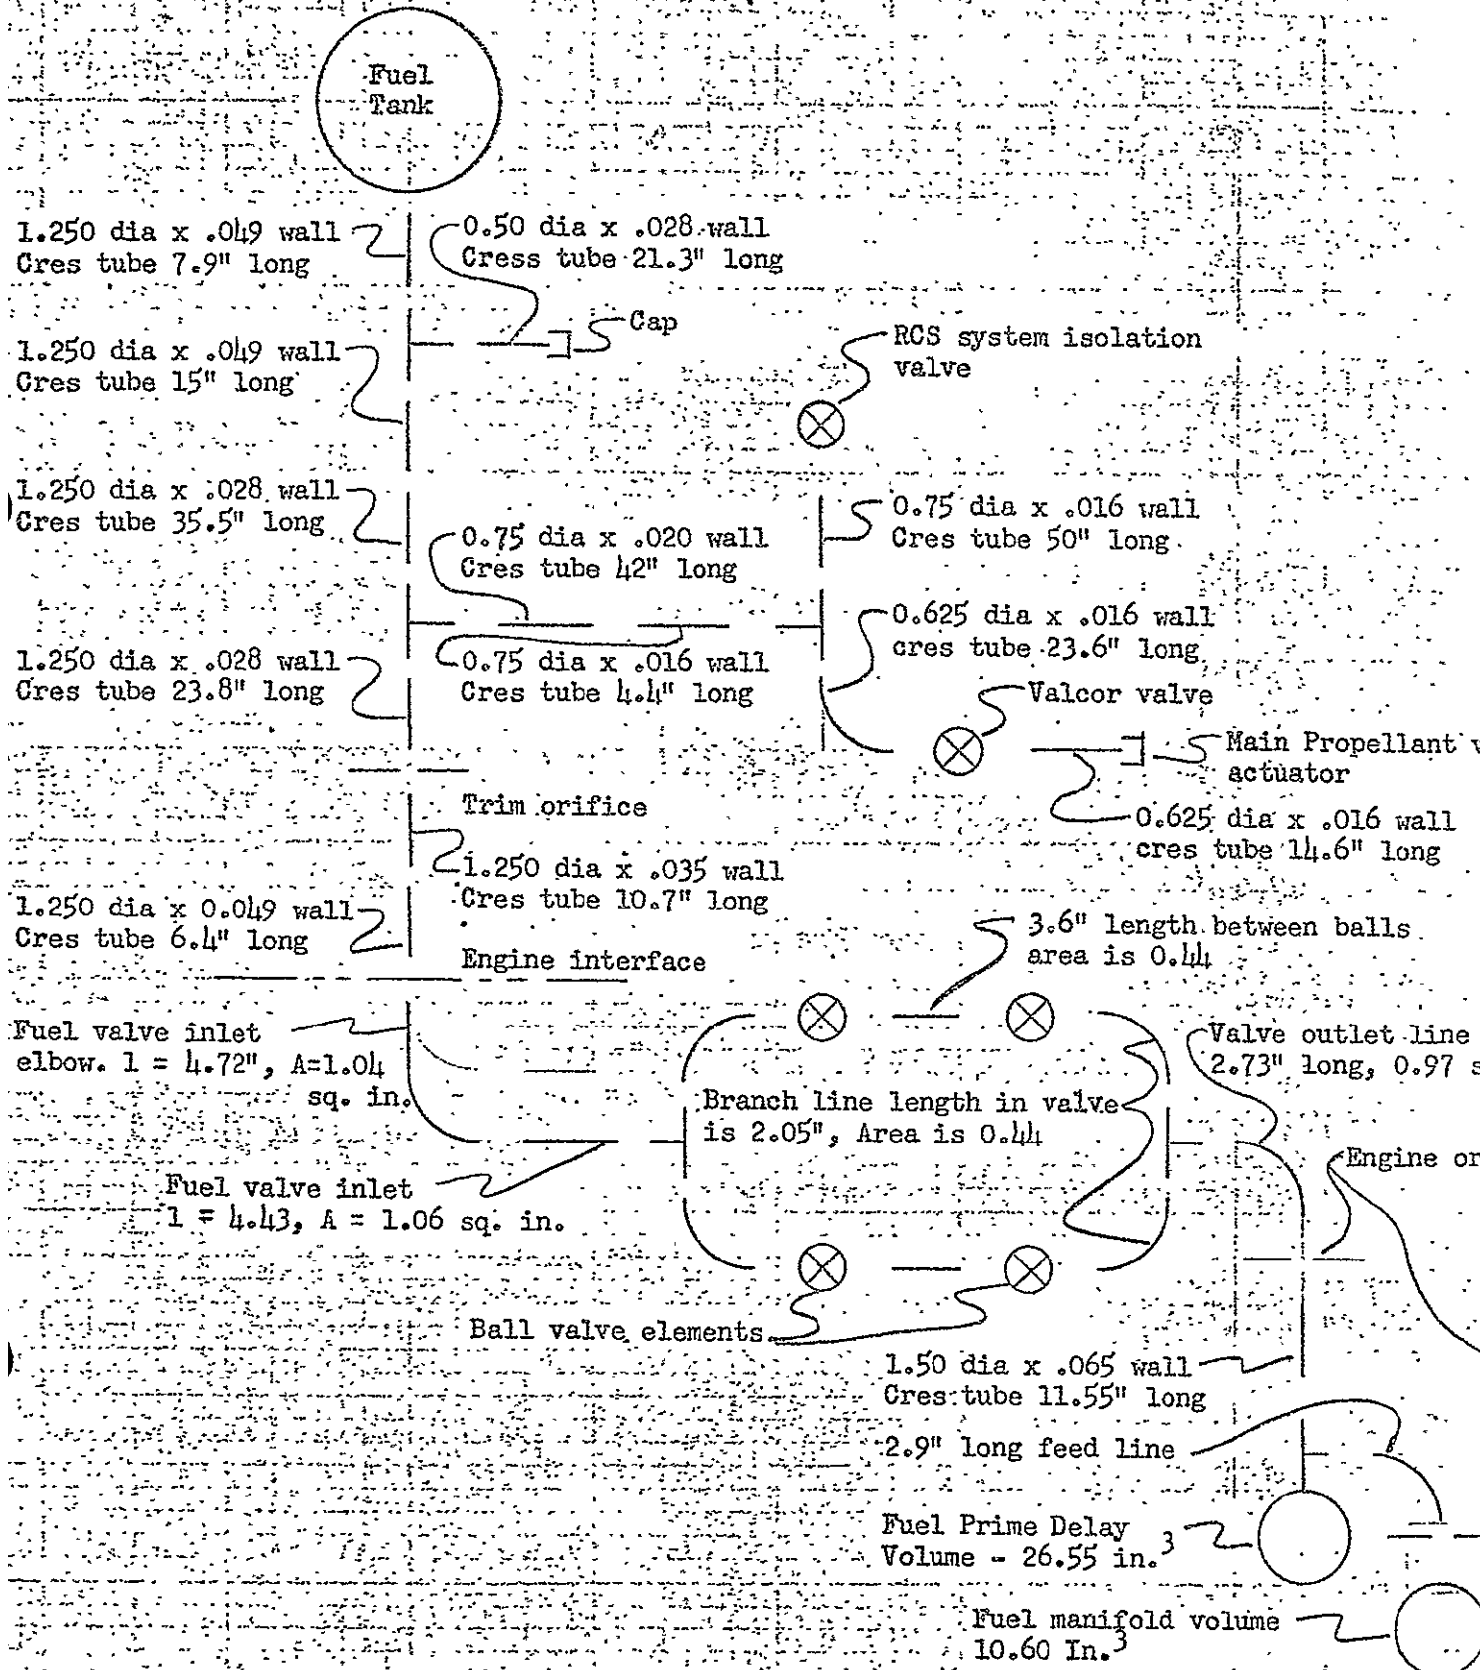 Fuel
Tank
1.250 dia x .049 wall
Cres tube 7.9" long
0.50 dia x .028 wall
Cress tube 21.3" long
Cap
1.250 dia x .049 wall
Cres tube 15" long
RCS system isolation
valve
1.250 dia x .028 wall
Cres tube 35.5" long
0.75 dia x .020 wall
Cres tube 42" long
0.75 dia x .016 wall
Cres tube 50" long
0.625 dia x .016 wall
cres tube 23.6" long
1.250 dia x .028 wall
Cres tube 23.8" long
0.75 dia x .016 wall
Cres tube 4.4" long
Valcor valve
Main Propellant
actuator
Trim orifice
0.625 dia x .016 wall
cres tube 14.6" long
1.250 dia x .035 wall
Cres tube 10.7" long
1.250 dia x 0.049 wall
Cres tube 6.4" long
3.6" length between balls
area is 0.44
Engine interface
Fuel valve inlet
elbow. l = 4.72", A=1.04
sq. in.
Valve outlet line
2.73" long, 0.97
Branch line length in valve
is 2.05", Area is 0.44
Engine
Fuel valve inlet
l = 4.43, A = 1.06 sq. in.
Ball valve elements
1.50 dia x .065 wall
Cres tube 11.55" long
2.9" long feed line
Fuel Prime Delay
Volume - 26.55 in.3
Fuel manifold volume
10.60 In.3